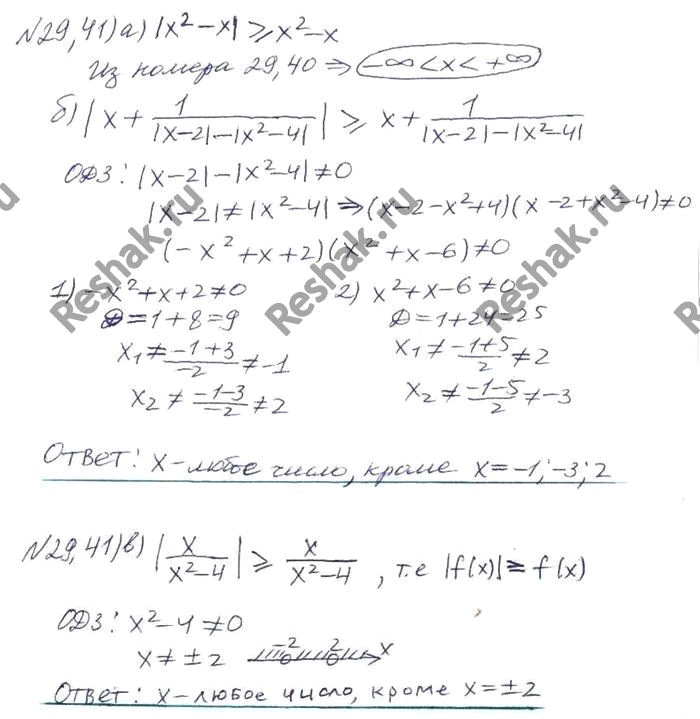 N29,41) а) |x²-x| ⩾ x²-x
Из номера 29,40 ⇒ -∞<x<+∞
б) |x + 1/(|x-2|-|x²-4|)| ⩾ x + 1/(|x-2|-|x²-4|)
ОДЗ: |x-2|-|x²-4| ≠ 0
|x-2| ≠ |x²-4| ⇒ (x-2-x²+4)(x-2+x²-4) ≠ 0
(-x²+x+2)(x²+x-6) ≠ 0
1) -x²+x+2 ≠ 0 2) x²+x-6 ≠ 0
D = 1+8 = 9 D = 1+24 = 25
x₁ ≠ (-1+3)/(-2) ≠ -1 x₁ ≠ (-1+5)/2 ≠ 2
x₂ ≠ (-1-3)/(-2) ≠ 2 x₂ ≠ (-1-5)/2 ≠ -3
Ответ: x - любое число, кроме x = -1; -3; 2
N29,41) в) |x/(x²-4)| ⩾ x/(x²-4), т.е |f(x)| ⩾ f(x)
ОДЗ: x²-4 ≠ 0
x ≠ ±2 -2 2 x
Ответ: x - любое число, кроме x = ±2
Reshak.ru
Reshak.ru
Reshak.ru